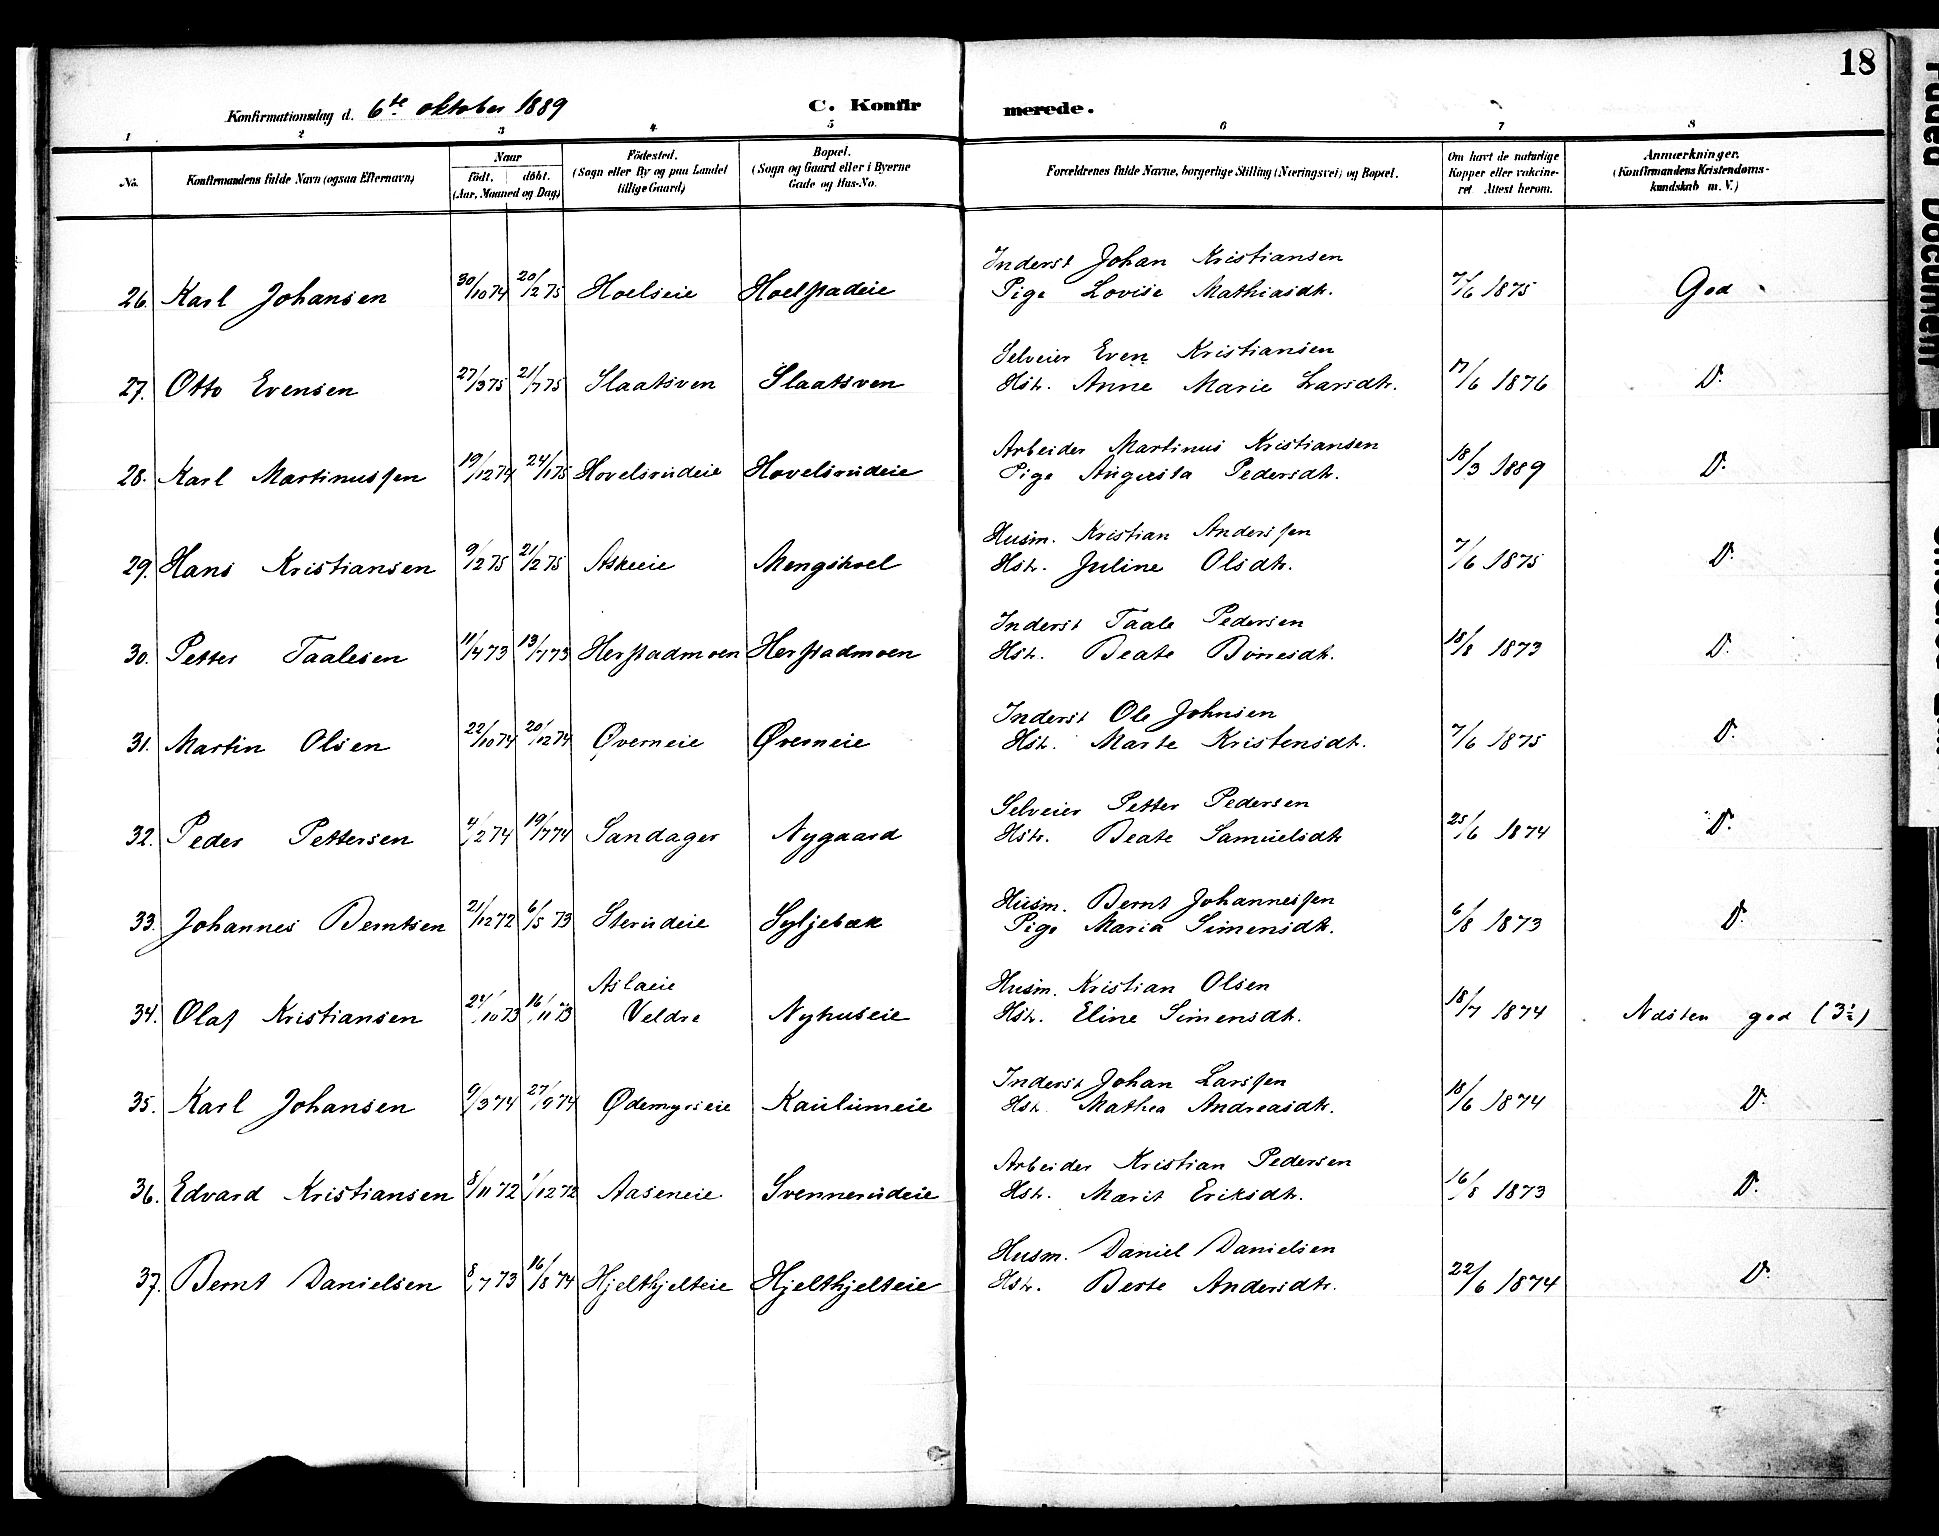 18
Konfirmationsdag d. 6te oktober 1889
C. Konfirmerede.
1 2 3 4 5 6 7 8
No. Konfirmandens fulde Navn (ogsaa Efternavn) Naar födt. döbt. (Aar, Maaned og Dag) Födested. (Sogn eller By og paa Landet tillige Gaard) Bopæl. (Sogn og Gaard eller i Byerne Gade og Hus-No. Forældrenes fulde Navne, borgerlige Stilling (Næringsvei) og Bopæl. Om havt de naturlige Kopper eller vakcineret Attest herom. Anmærkninger. (Konfirmandens Kristendomskundskab m. V.)
Inderst Johan Kristiansen
26. Karl Johansen 30/10 74 20/2 75 Hoelseie Hoelstadeie Pige Lovise Mathiasdtr. 7/6 1875 God
Selveier Even Kristiansen
27. Otto Evensen 27/3 75 21/7 75 Slaatsven Slaatsven Hstr. Anne Marie Larsdtr. 17/6 1876 D.
Arbeider Martinus Kristiansen
28. Karl Martinussen 19/12 74 24/1 75 Hovelsrudeie Hovelsrudeie Pige Augusta Pedersdtr. 18/3 1889 D.
Husm. Kristian Anderssen
29. Hans Kristiansen 9/2 75 21/2 75 Askeie Mengshoel Hstr. Juline Olsdtr. 7/6 1875 D.
Inderst Taale Pedersen
30. Petter Taalesen 11/4 73 13/7 73 Herstadmoen Herstadmoen Hstr. Beate Börresdtr. 18/8 1873 D.
Inderst Ole Johnsen
31. Martin Olsen 22/10 74 20/12 74 Øverneie Øverneie Hstr. Marte Kristensdtr. 7/6 1875 D.
Selveier Petter Pedersen
32. Peder Pettersen 4/2 74 19/7 74 Sandager Nygaard Hstr. Beate Samuelsdtr 25/6 1874 D.
Husm. Bernt Johannessen
33. Johannes Berntsen 21/12 72 6/5 73 Sterudeie Syljebæk Pige Maria Simensdtr. 6/8 1873 D.
Aslaeie Husm. Kristian Olsen
34. Olaf Kristiansen 24/10 73 16/11 73 Veldre Nyhuseie Hstr. Eline Simensdtr. 18/7 1874 Næsten god (3½)
Inderst Johan Larssen
35. Karl Johansen 9/3 74 27/9 74 Ødemyrseie Kaulumeie Hstr. Mathea Andreasdtr. 18/6 1874 D.
Arbeider Kristian Pedersen
36. Edvard Kristiansen 8/11 72 1/12 72 Aaseneie Svennerudeie Hstr. Marit Eriksdtr. 16/8 1873 D.
Husm. Daniel Danielsen
37. Bernt Danielsen 8/7 73 16/8 74 Hjelthjelteie Hjelthjelteie Hstr. Berte Andersdtr. 22/6 1874 D.
Faded Document